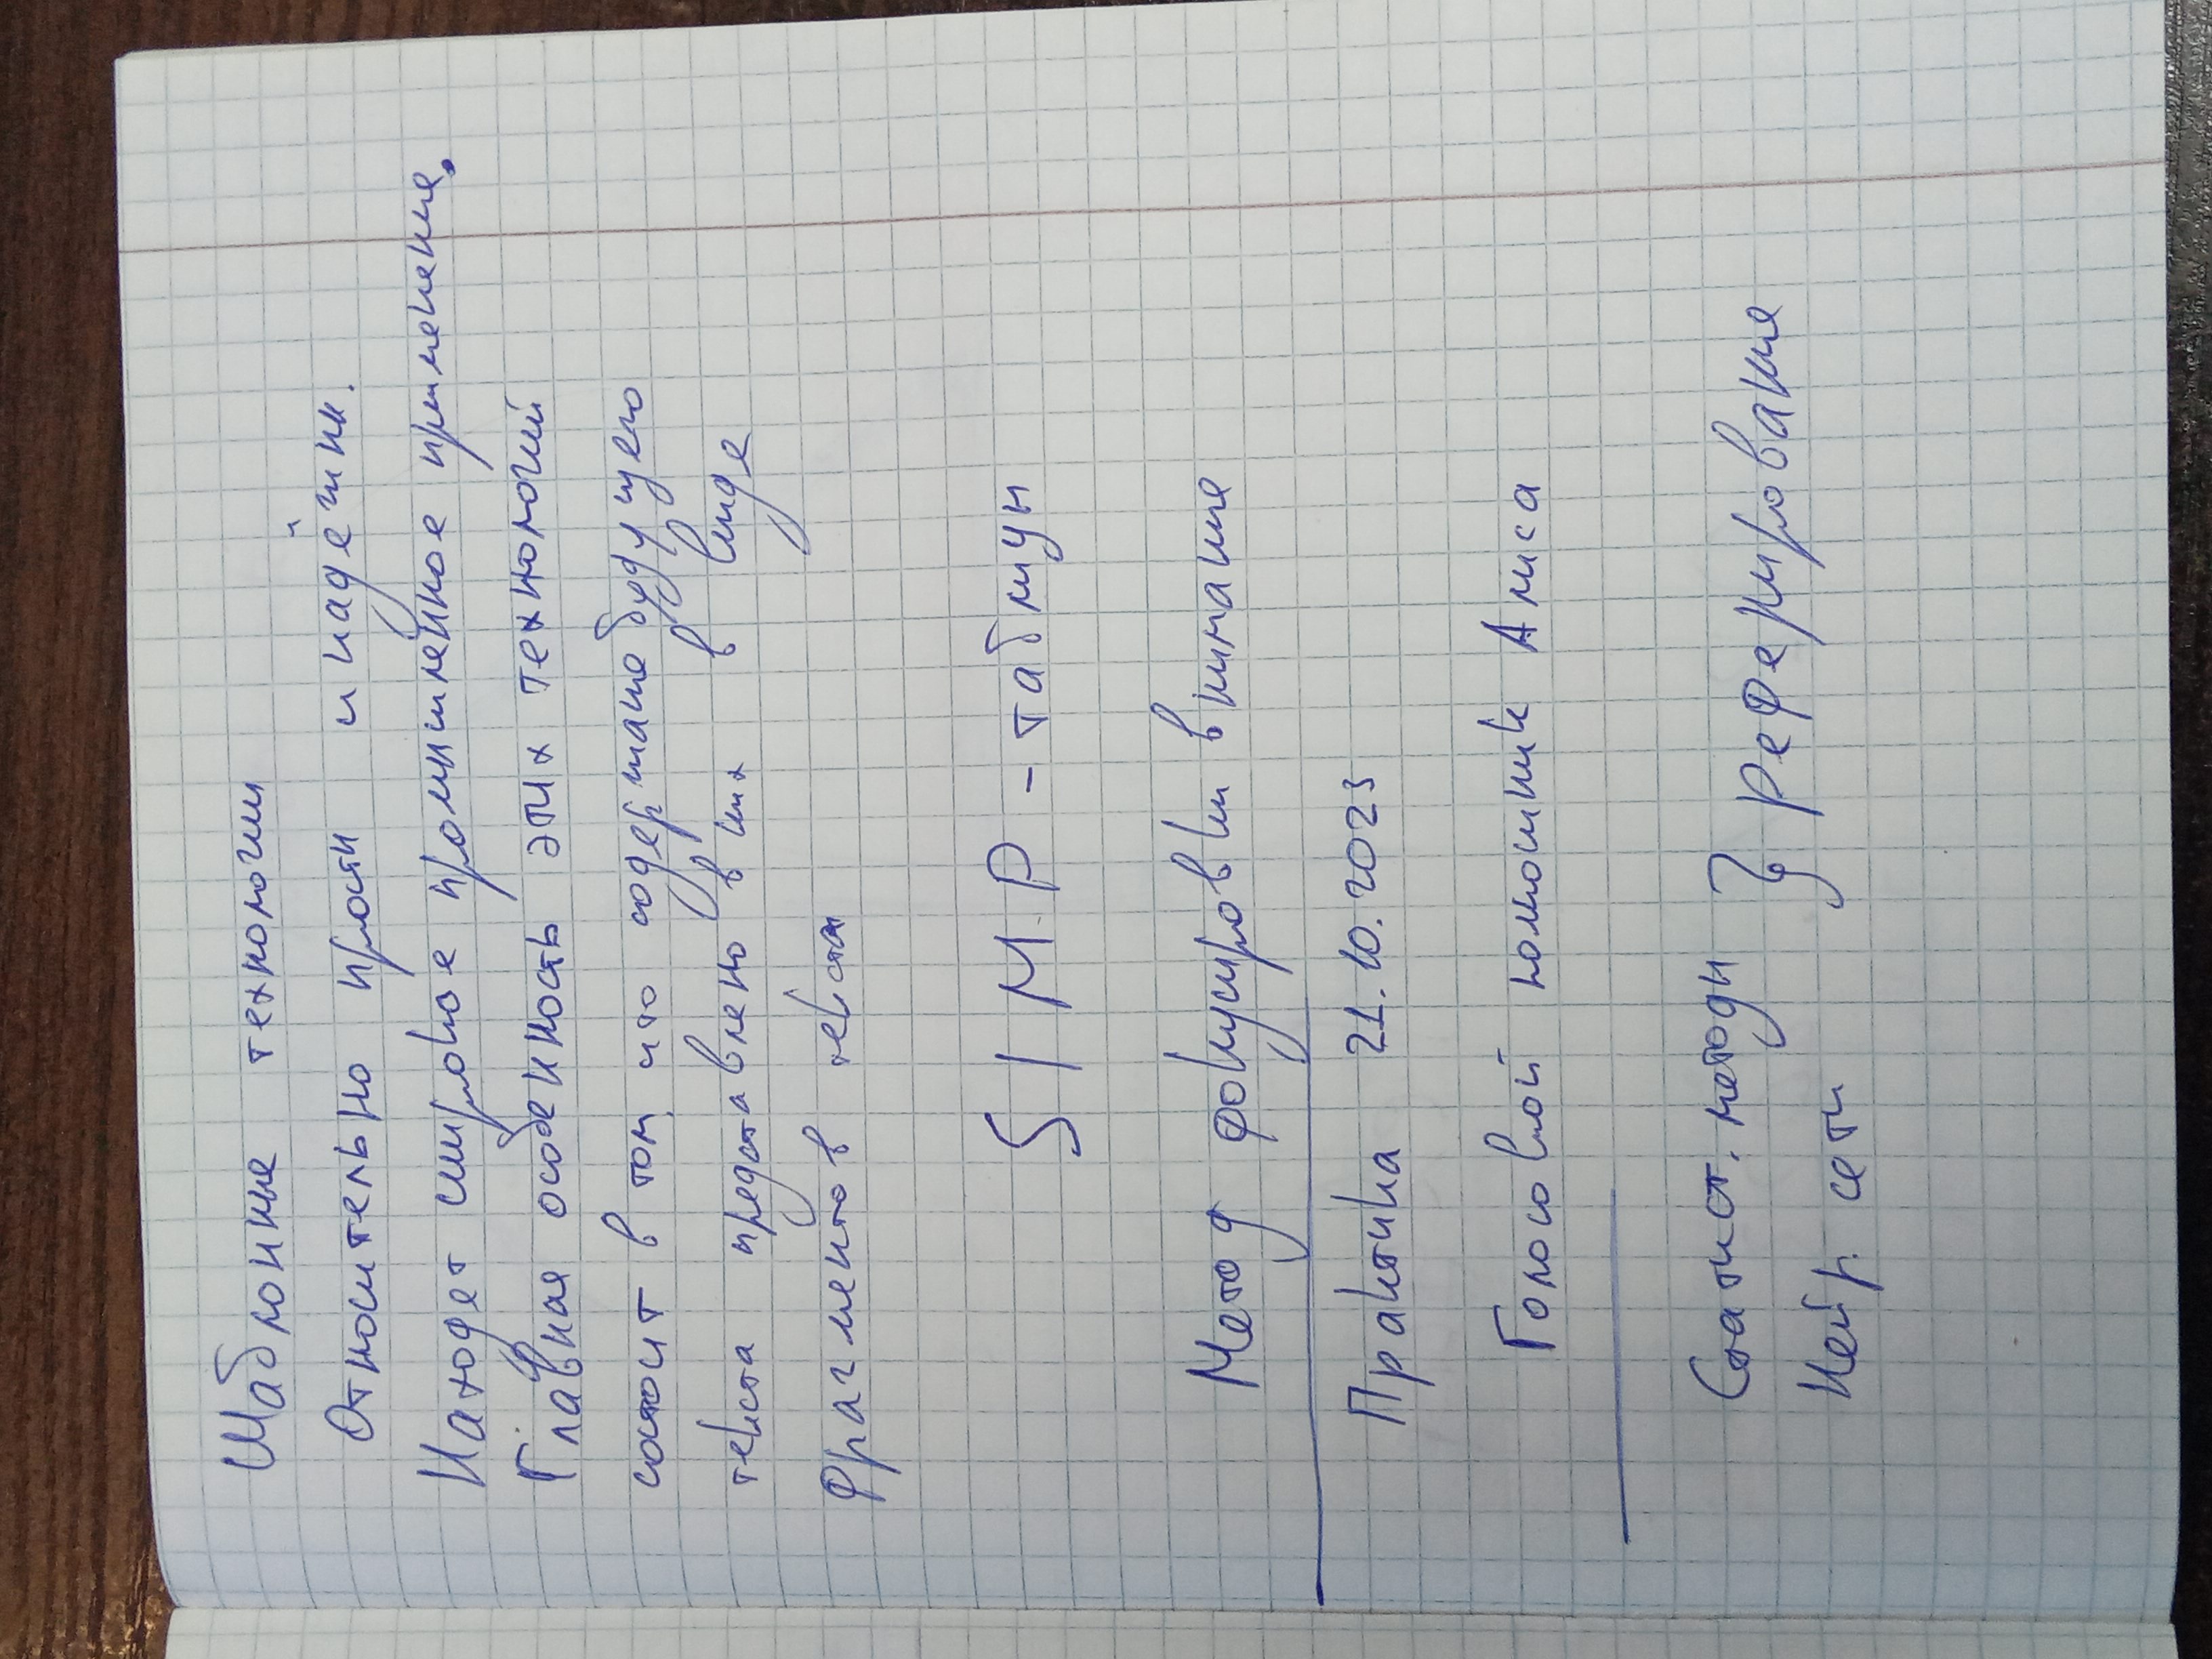 Шаблонные технологии
Относительно просты и надёжны.
Находет широкое промышленное применение.
Главная особенность этих технологий
состоит в том, что содержание будущего
текста представлено в них в виде
фрагментов текста
SIMP - таблицы
Метод фокусировки внимание
Практика 21.10.2023
Голосовой помошник Алиса
Статист. методы } реферирование
Нейр. сети